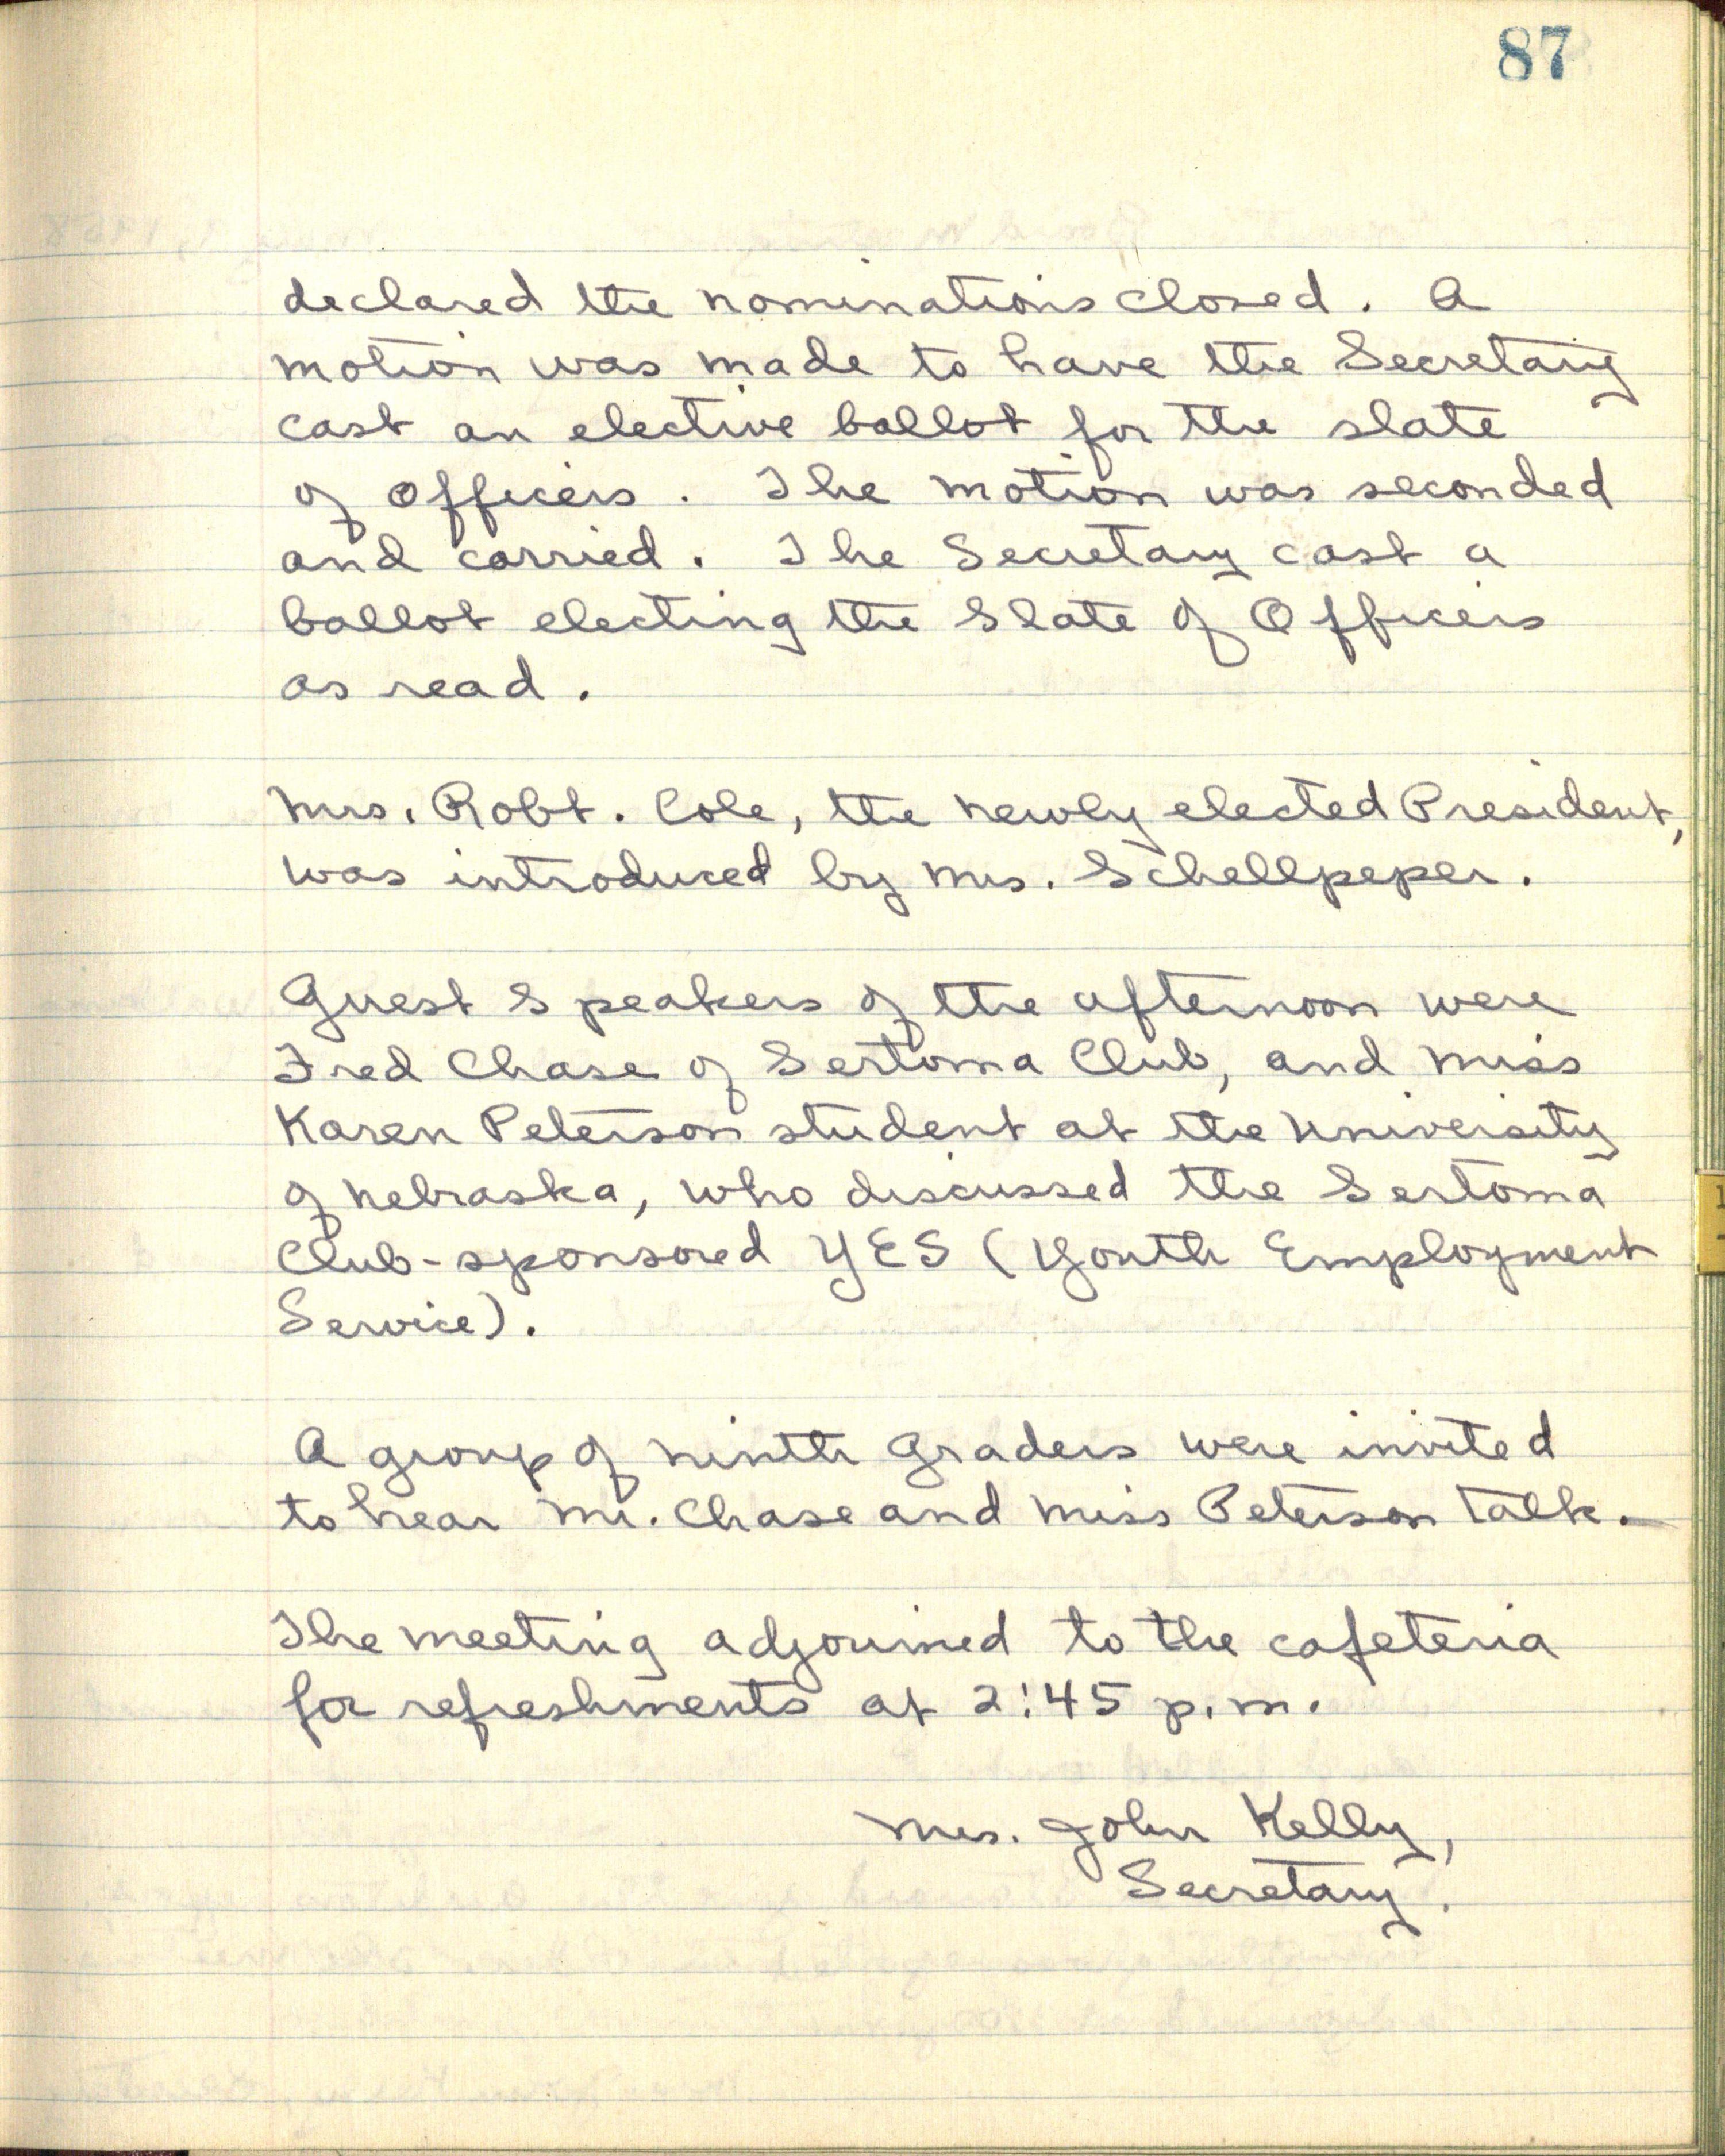 87
declared the nominations closed. A
motion was made to have the Secretary
cast an elective ballot for the slate
of officers. The motion was seconded
and carried. The Secretary cast a
ballot electing the Slate of Officers
as read.
Mrs. Robt. Cole, the newly elected President,
was introduced by Mrs. Schellpeper.
Guest Speakers of the afternoon were
Fred Chase of Sertoma Club, and Miss
Karen Peterson student at the University
of Nebraska, who discussed the Sertoma
Club-sponsored YES (Youth Employment
Service).
A group of ninth Graders were invited
to hear Mr. Chase and Miss Peterson talk.
The meeting adjourned to the cafeteria
for refreshments at 2:45 p.m.
Mrs. John Kelly,
Secretary.